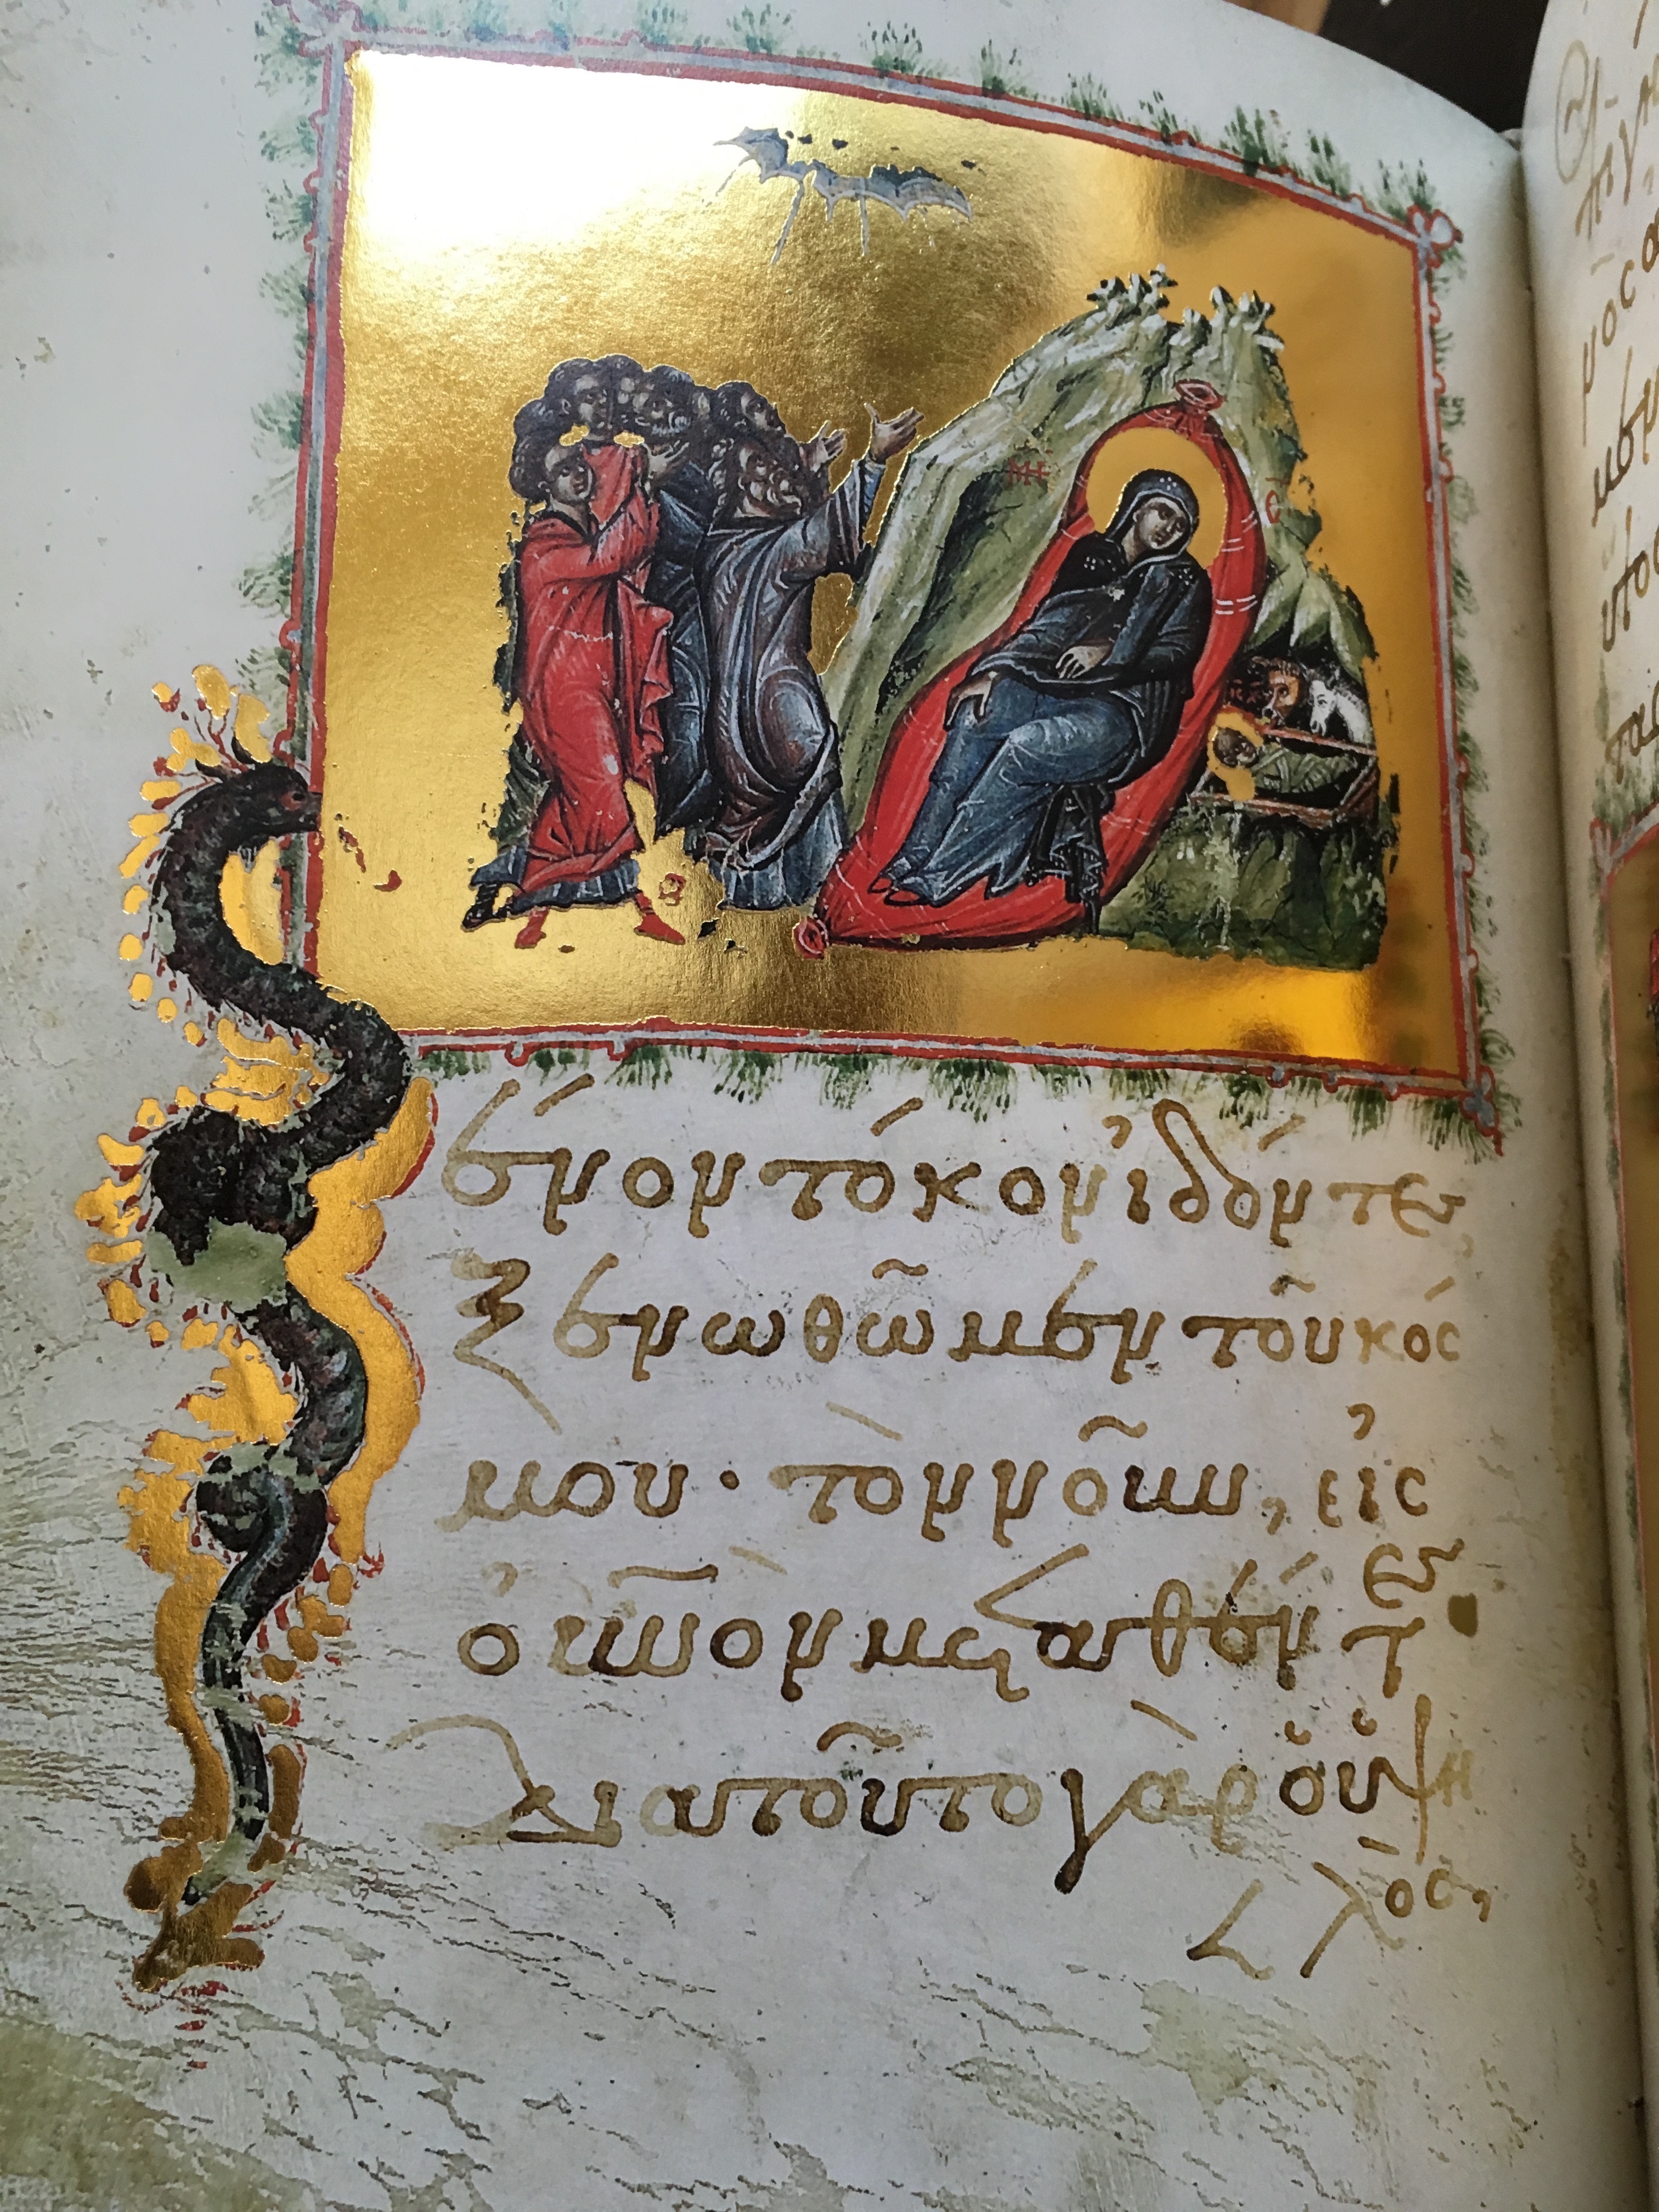 Ξένον τόκον ἰδόντες,
ξενωθῶμεν τοῦ κόσ
μου· τὸν νοῦν, εἰς
οὐνὸν μεταθέντες
Διατοῦτο γὰρ ὁ ὑψη
λὸς,